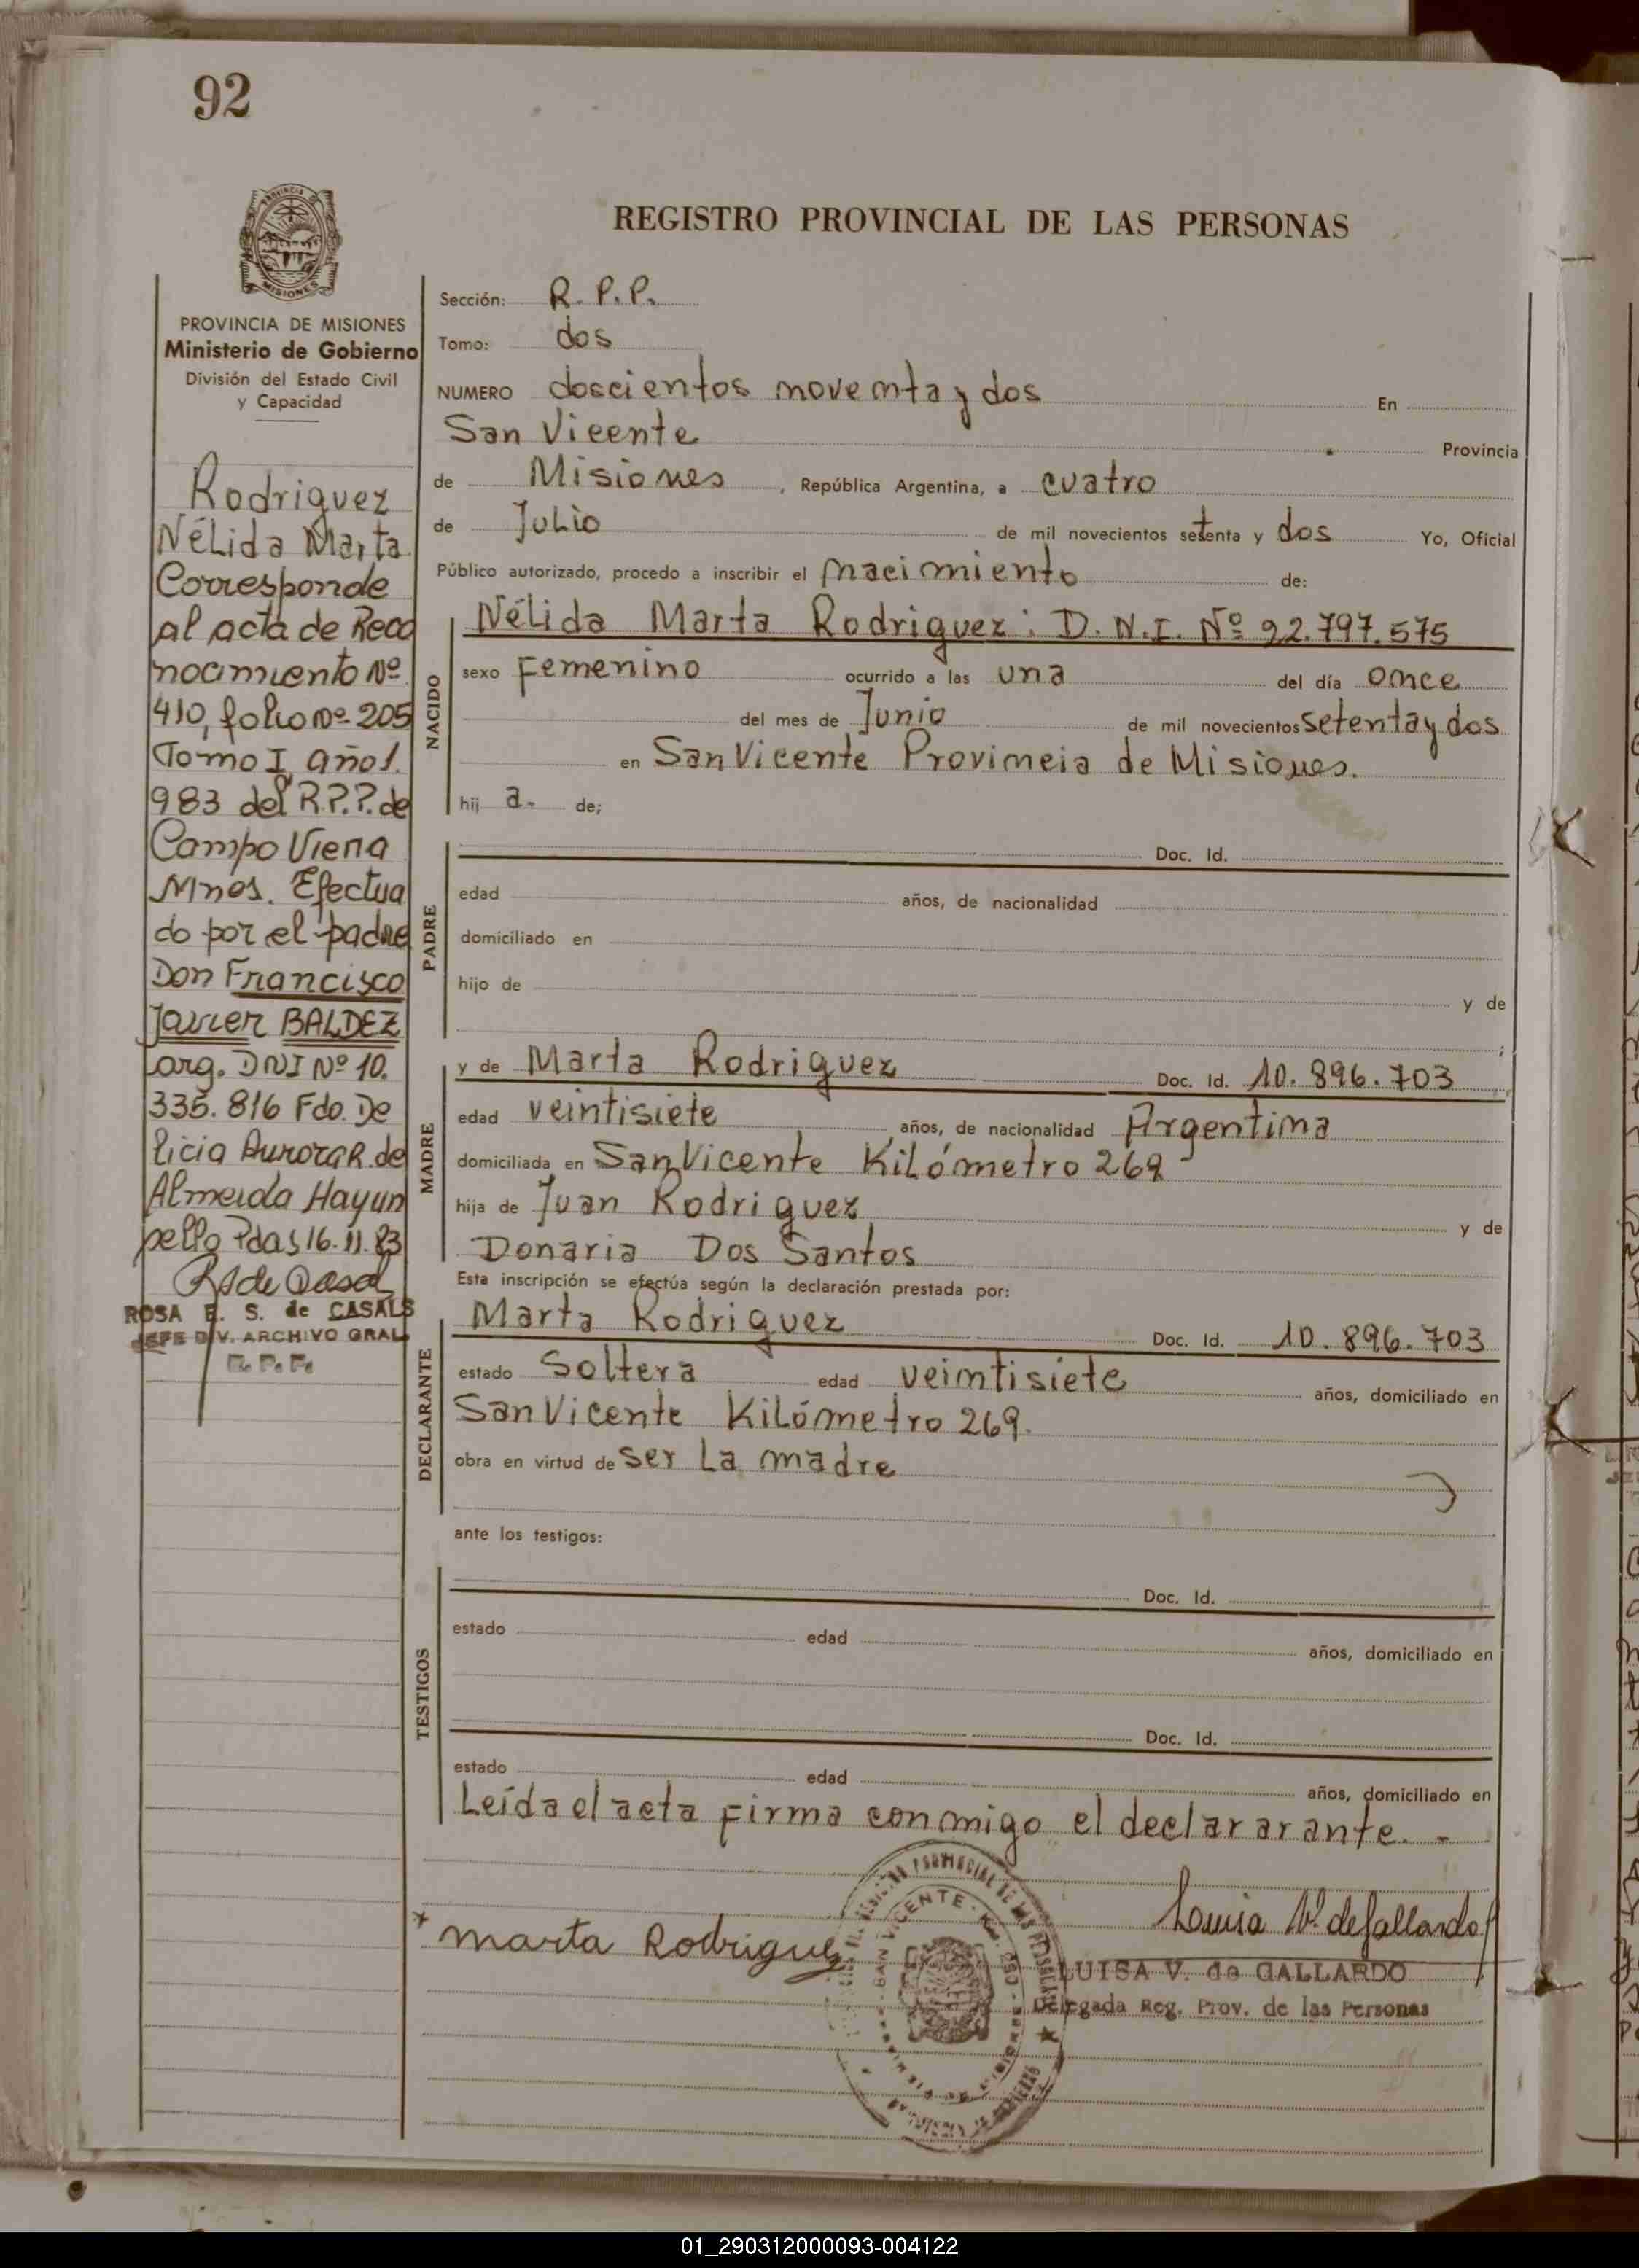 92
REGISTRO PROVINCIAL DE LAS PERSONAS
PROVINCIA DE MISIONES
Ministerio de Gobierno
División del Estado Civil
y Capacidad
Rodriguez
Nélida Marta
Corresponde
al acta de Reco
nocimiento Nº
410, folio Nº 205
Tomo I año 1.
983 del R.P.P. de
Campo Viera
Mnes. Efectua
do por el padre
Don Francisco
Javier BALDEZ
arg. DNI Nº 10.
335.816 Fdo. De
licia Aurora R. de
Almeida Hay un
sello Pdas 16.11.83
ROSA E. S. de CASALS
JEFE DIV. ARCHIVO GRAL.
R. P. P.
Sección: R. P. P.
Tomo: dos
NUMERO doscientos noventa y dos En
San Vicente Provincia
de Misiones, República Argentina, a cuatro
de Julio de mil novecientos setenta y dos Yo, Oficial
Público autorizado, procedo a inscribir el nacimiento de:
NACIDO
Nélida Marta Rodriguez: D.N.I. Nº 92.797.575
sexo Femenino ocurrido a las una del día once
del mes de Junio de mil novecientos setenta y dos
en San Vicente Provincia de Misiones.
hij a. de;
PADRE
Doc. Id.
edad años, de nacionalidad
domiciliado en
hijo de y de
;
MADRE
y de Marta Rodriguez Doc. Id. 10.896.703
edad veintisiete años, de nacionalidad Argentina
domiciliada en San Vicente Kilómetro 269
hija de Juan Rodriguez y de
Donaria Dos Santos
Esta inscripción se efectúa según la declaración prestada por:
DECLARANTE
Marta Rodriguez Doc. Id. 10.896.703
estado Soltera edad veintisiete años, domiciliado en
San Vicente Kilómetro 269.
obra en virtud de ser La madre
ante los testigos:
TESTIGOS
Doc. Id.
estado edad años, domiciliado en
Doc. Id.
estado edad años, domiciliado en
Leída el acta firma conmigo el declararante. -
Marta Rodriguez
Luisa V. de Gallardo
LUISA V. de GALLARDO
Delegada Reg. Prov. de las Personas
01_290312000093-004122